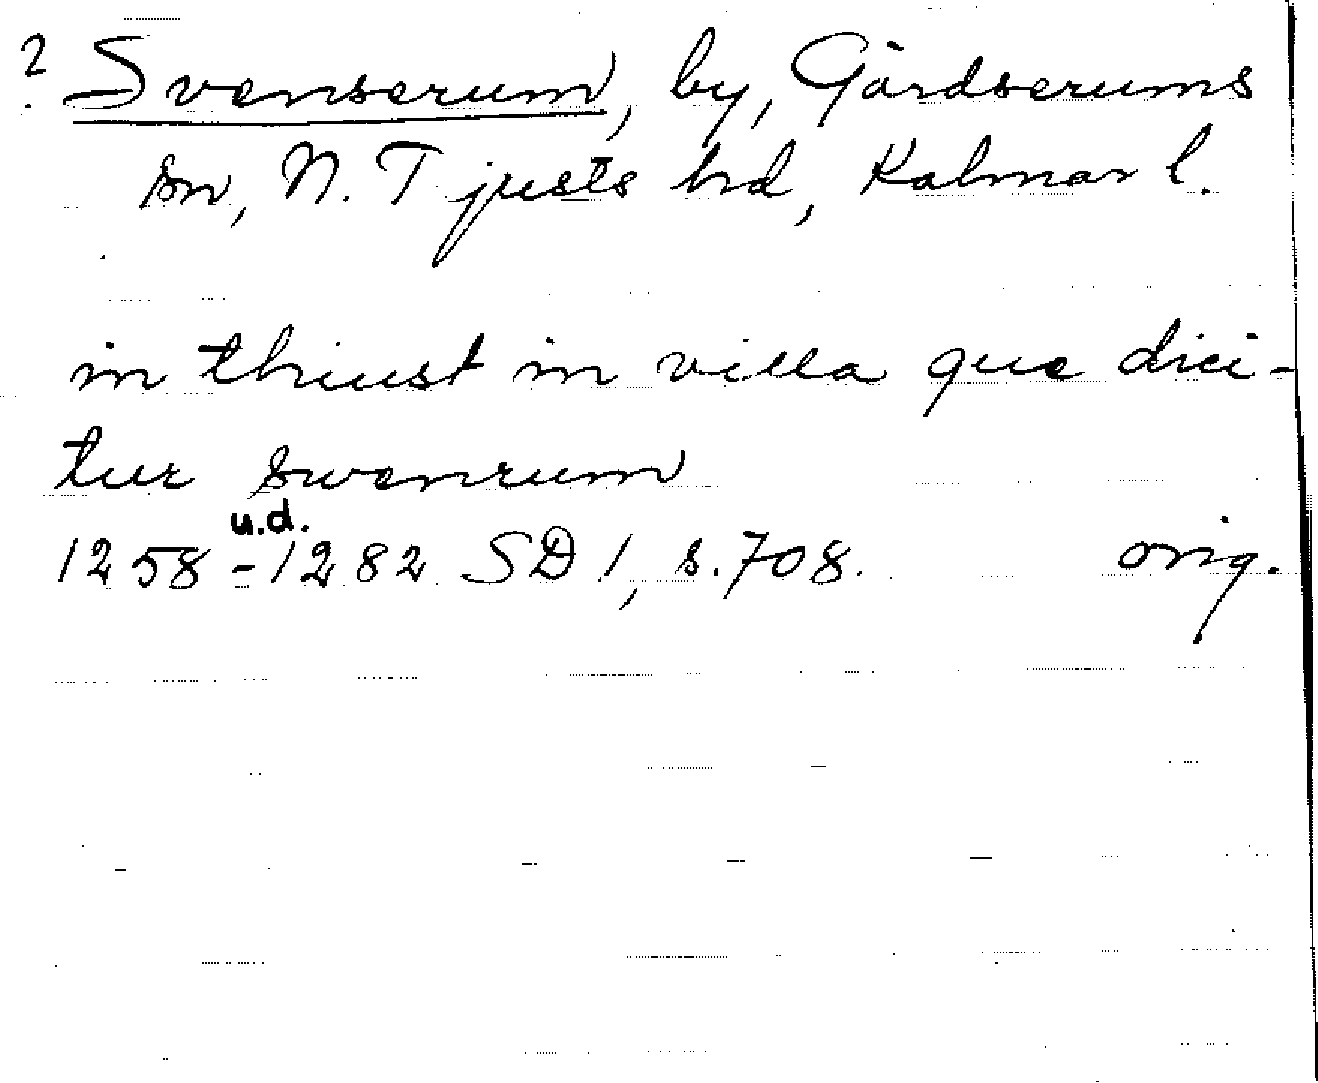 ? Svenserum, by, Gärdserums
sn, N. Tjusts hd, Kalmar l.
in thiust in villa que dici-
tur swenrum
u.d.
1258-1282 SD 1, s.708. orig.